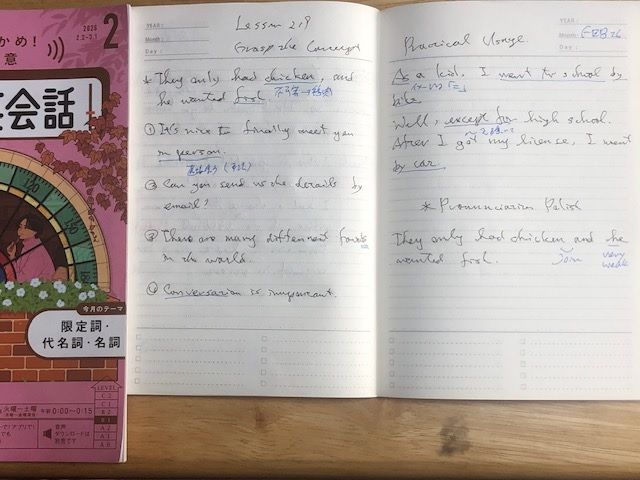 かめ!
意
2026
2.2-3.1
2
英会話
今月のテーマ
限定詞・
代名詞・名詞
LEVEL
C 2
C 1
B 2
B 1
A 2
A 1
A 0
火曜~土曜
午前 0:00~0:15
音声
ダウンロードは
別売です
YEAR:
Month:
Day:
Lesson 219
Grasp the Concept
* They only had chicken, and
he wanted fish.
① It's nice to finally meet you
in person.
② Can you send us the details by
email?
③ There are many different foods
in the world.
④ Conversation is important.
YEAR:
Month: FEB 26.
Day:
Practical Usage.
As a kid, I went to school by
bike.
Well, except for high school.
After I got my license, I went
by car.
* Pronunciation Polish
They only had chicken and he
wanted fish.
Join
very
weak